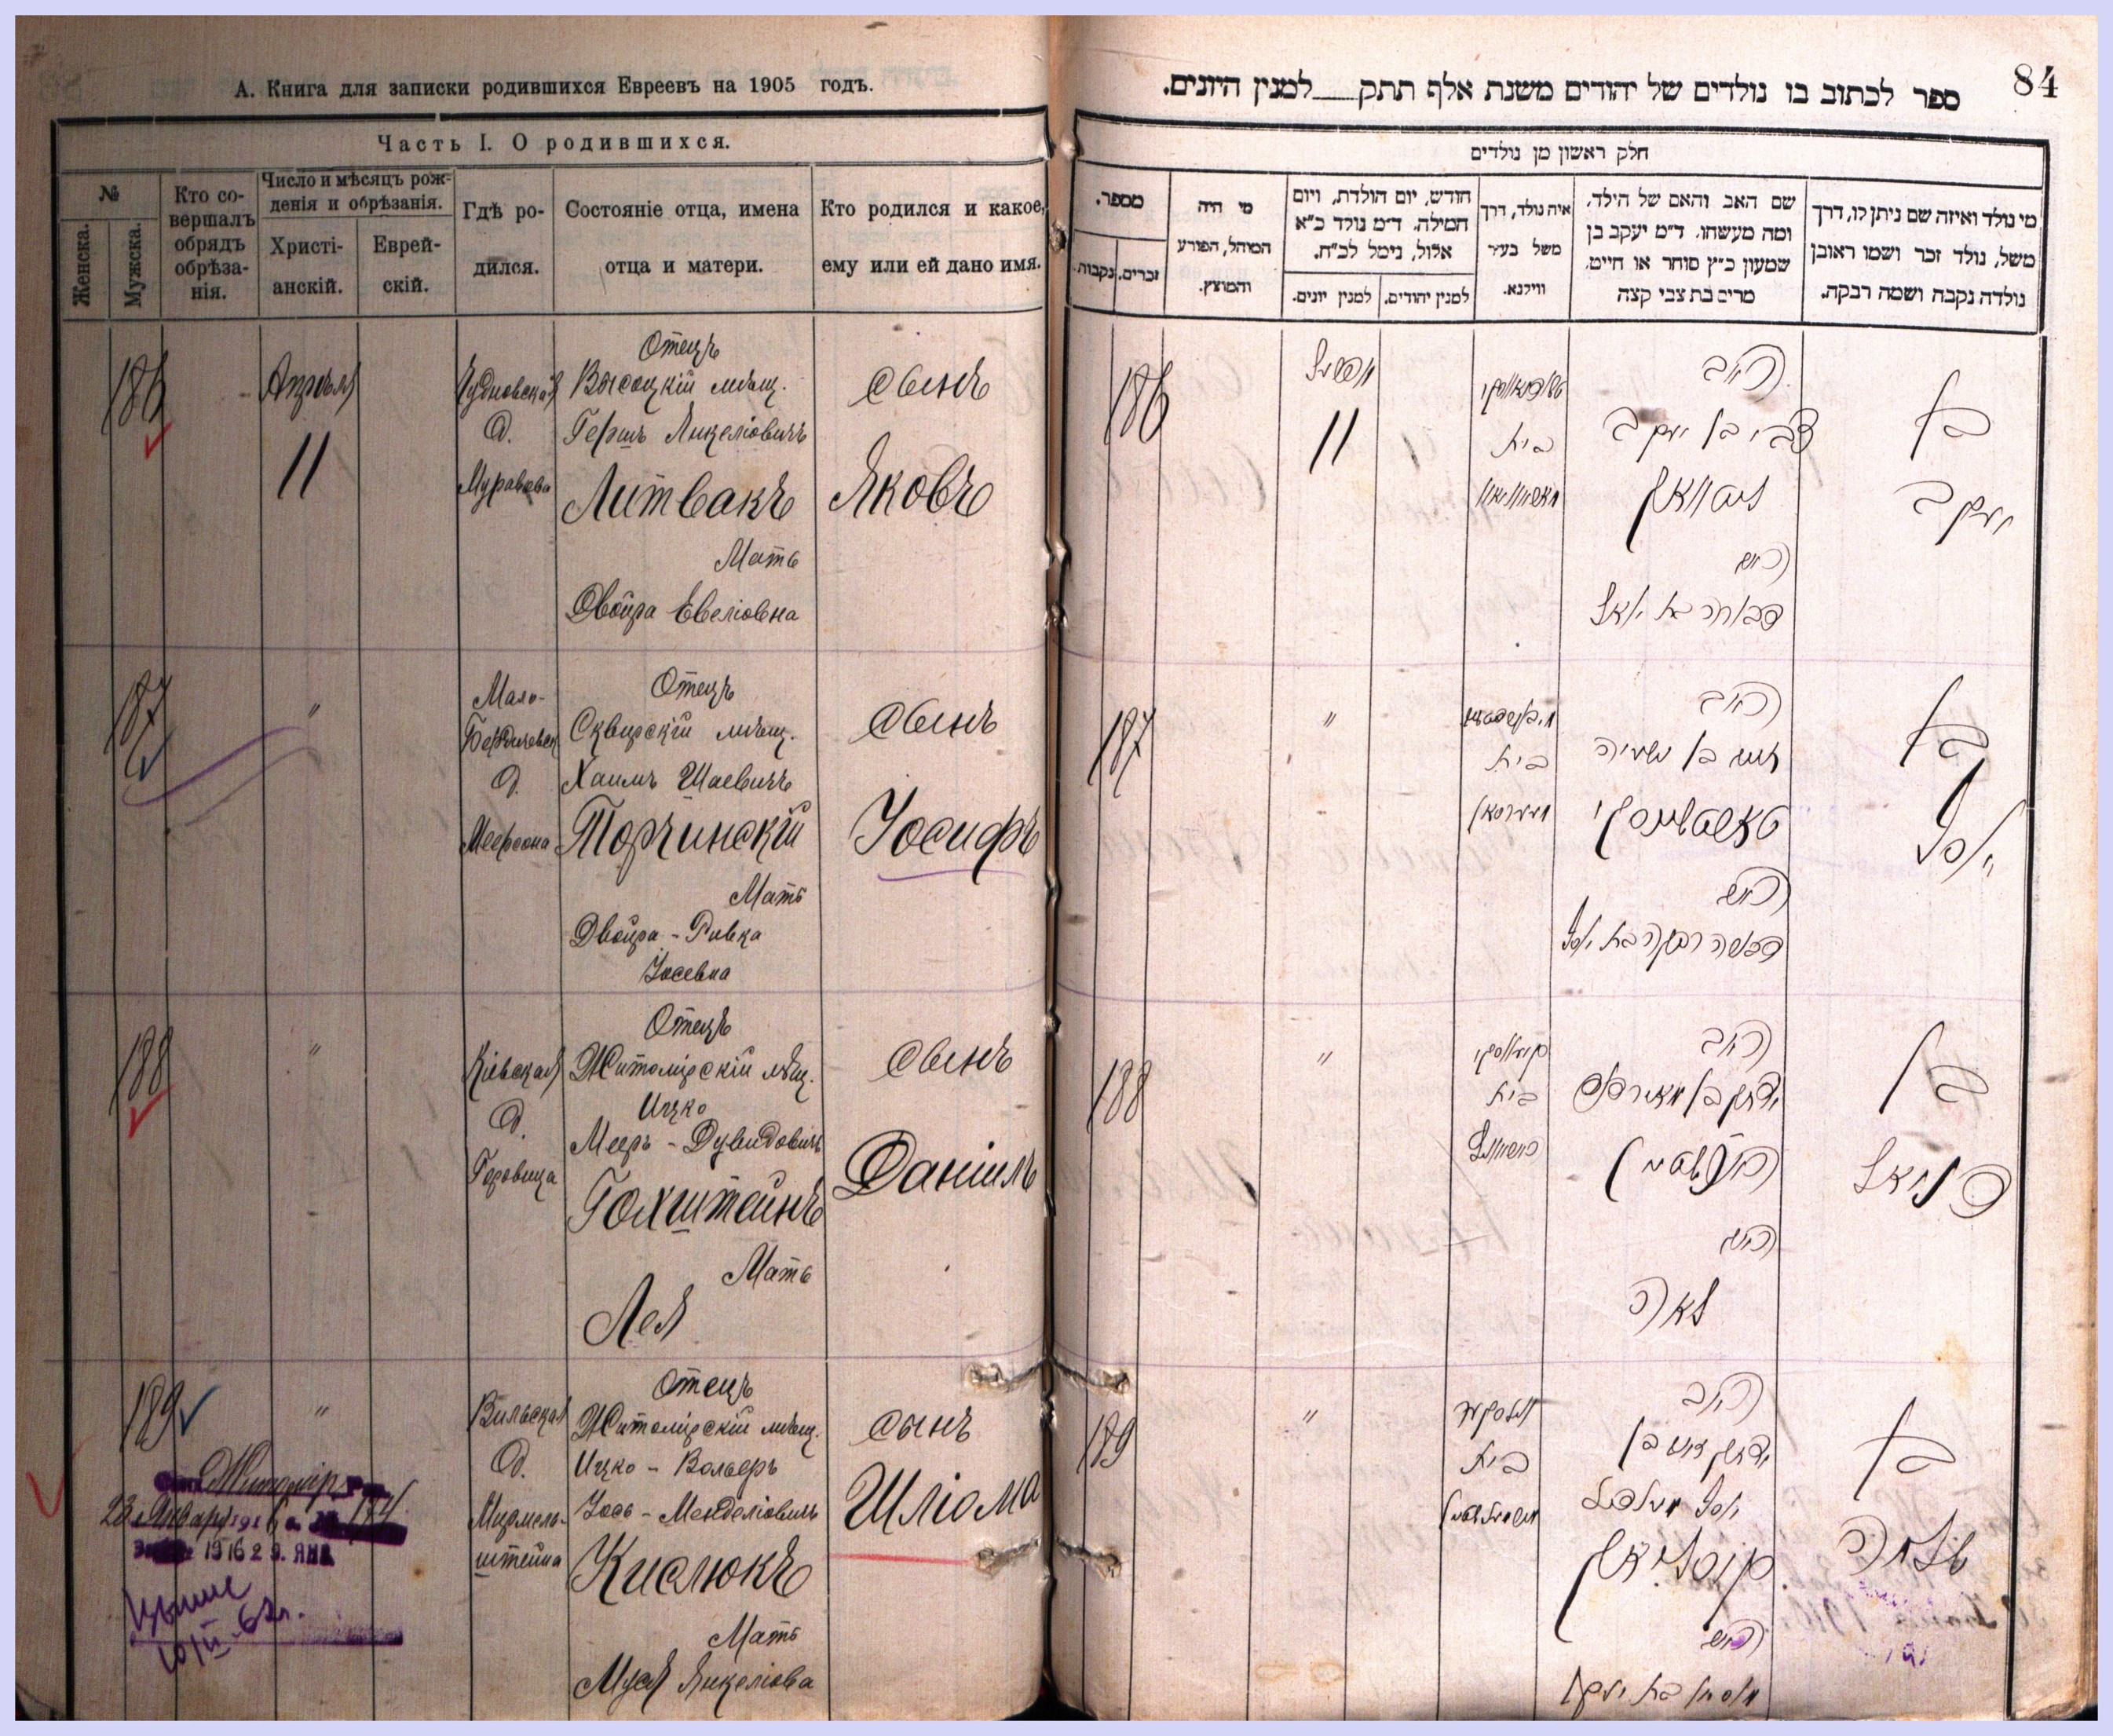 А. Книга для записки родившихся Евреевъ на 1905 годъ.
Часть I. О родившихся.
№
Женска.
Мужска.
Кто со-
вершалъ
обрядъ
обрѣза-
нія.
Число и мѣсяцъ рож-
денія и обрѣзанія.
Христі-
анскій.
Еврей-
скій.
Гдѣ ро-
дился.
Состояніе отца, имена
отца и матери.
Кто родился и какое,
ему или ей дано имя.
186
Апрѣля
11
Чудновская
д.
Муравьева
Отецъ
Высоцкій мѣщ.
Гершъ Янкеліовичъ
Литвакъ
Мать
Двойра Евеліовна
сынъ
Яковъ
187
"
Мало-
Бердичевск
д.
Меерсона
Отецъ
Сквирскій мѣщ.
Хаимъ Шаевичъ
Торчинскій
Мать
Двойра - Ривка
Іосевна
сынъ
Іосифъ
188
"
Кіевская
д.
Горовица
Отецъ
Житомірскій мѣщ.
Ицко
Мееръ - Дувидовичъ
Гохштейнъ
Мать
Лея
сынъ
Даніилъ
189
"
Вильская
д.
Мармель-
штейна
Отецъ
Житомірскій мѣщ.
Ицко - Вольфъ
Іось - Менделіовичъ
Кислюкъ
Мать
Муся Янкеліова
сынъ
Шліома
Житомір
23 Январ 1916
174
1916 29. ЯНВ
10/II - 62г.
84
ספר לכתוב בו נולדים של יהודים משנת אלף תתק למנין היונים.
חלק ראשון מן נולדים
מספר.
נקבות.
זכרים.
מי היה
המוהל, הפורע
והמוצץ.
חודש, יום הולדת, ויום
המילה. ד״מ נולד כ״א
אלול, נימל לכ״ח.
למנין יונים.
למנין יהודים.
איה נולד, דרך
משל בעיר
ווילנא.
שם האב והאם של הילד,
ומה מעשהו, ד״מ יעקב בן
שמעון כ״ץ סוחר או חייט,
מרים בת צבי קצה
מי נולד ואיזה שם ניתן לו, דרך
משל, נולד זכר ושמו ראובן
נולדה נקבה ושמה רבקה.
186
אפריל
11
בית
האב
צבי בן יעקב
ליטוואק
האם
בן
יעקב
187
"
בית
מעערסאן
האב
חיים בן ישעיה
טארטשינסקי
האם
דבורה רבקה בת יוסף
בן
יוסף
188
"
קיעווסקי
בית
האב
יצחק בן מאיר דוד
האם
לאה
בן
דניאל
189
"
ווילסקע
בית
האב
יצחק זאב בן
יוסף מענדיל
קיסליוק
האם
מוסיא בת יעקב
בן
שלמה